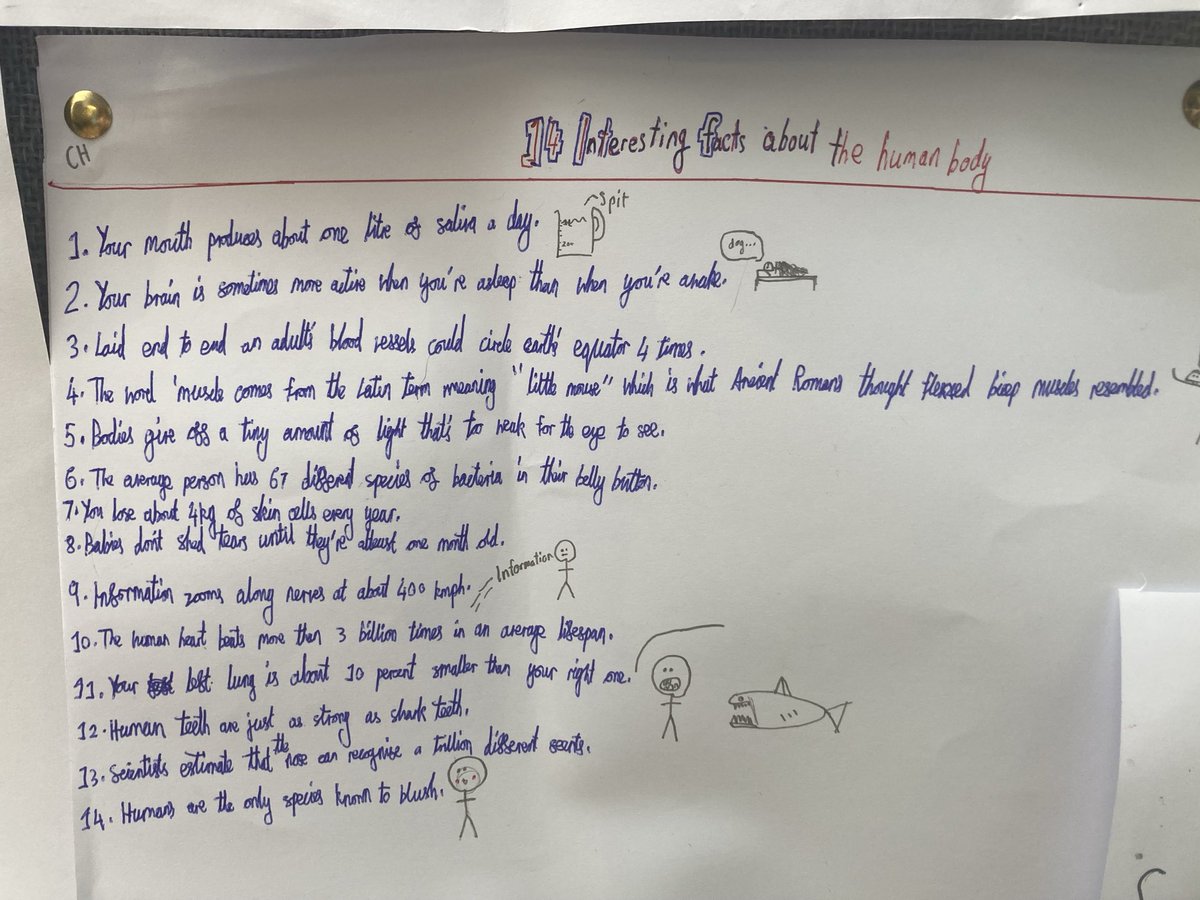 CH
14 Interesting facts about the human body
1. Your mouth produces about one litre of saliva a day.
spit
200
2. Your brain is sometimes more active when you're asleep than when you're awake.
3. Laid end to end an adult's blood vessels could circle earth's equator 4 times.
4. The word 'muscle comes from the Latin term meaning "little mouse" which is what Ancient Romans thought flexed bicep muscles resembled.
5. Bodies give off a tiny amount of light that's too weak for the eye to see.
6. The average person has 67 different species of bacteria in their belly button.
7. You lose about 4kg of skin cells every year.
8. Babies don't shed tears until they're atleast one month old.
9. Information zooms along nerves at about 400 kmph.
Information
10. The human heart beats more than 3 billion times in an average lifespan.
11. Your left lung is about 10 percent smaller than your right one.
12. Human teeth are just as strong as shark teeth.
13. Scientists estimate that the nose can recognise a trillion different scents.
14. Humans are the only species known to blush.